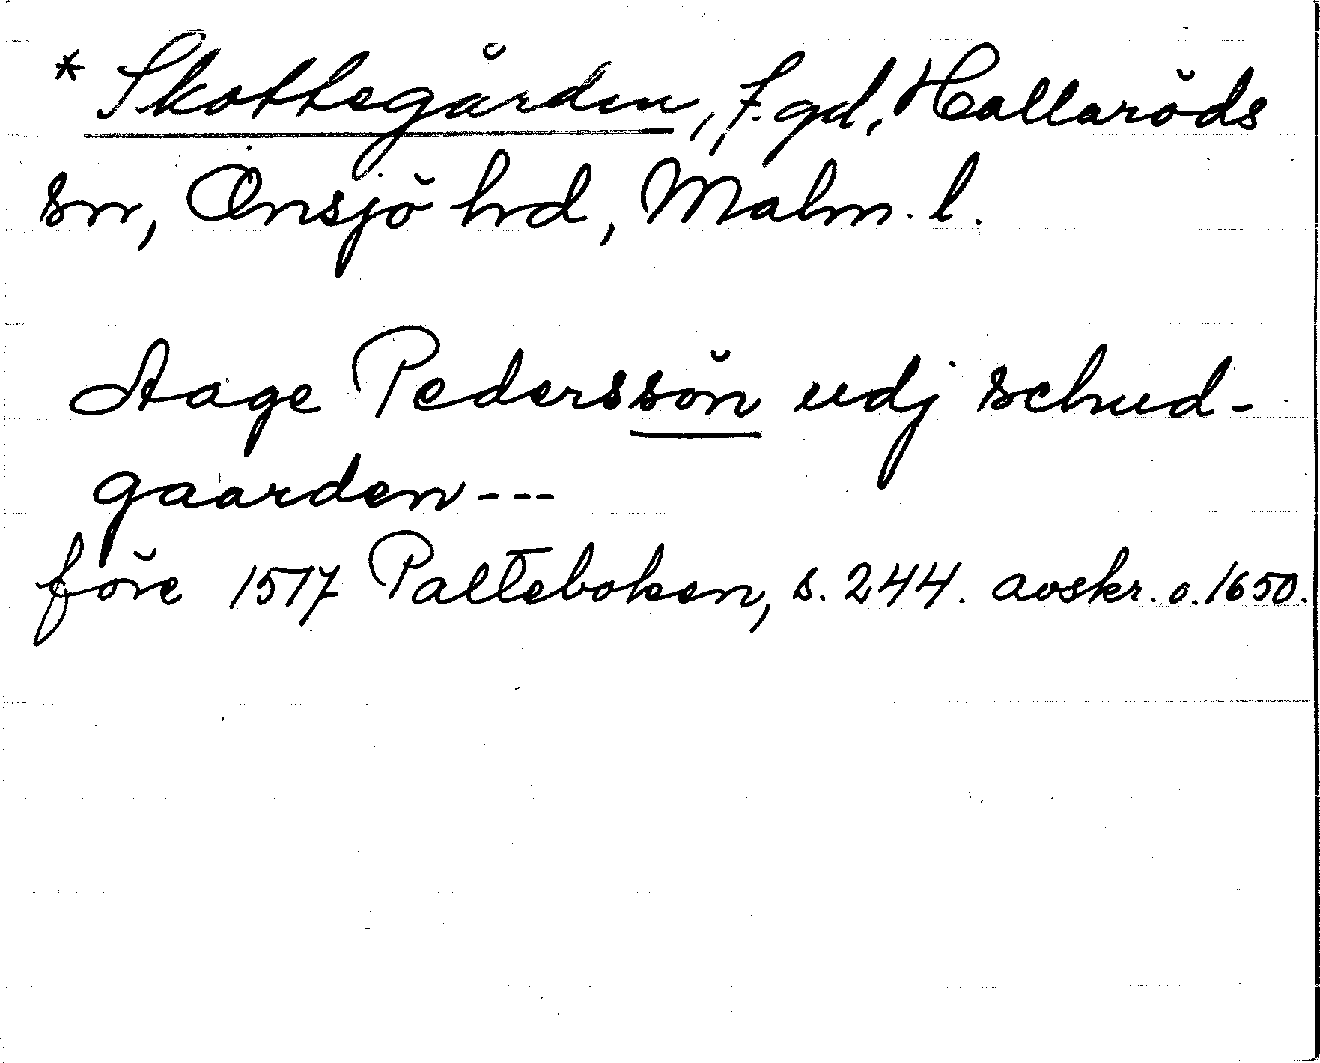 * Skottegården, f. gd, Hallaröds
sn, Onsjö hrd, Malm. l.
Aage Pederssön udj schud-
gaarden---
före 1517 Palteboken, s. 244. avskr. o. 1650.